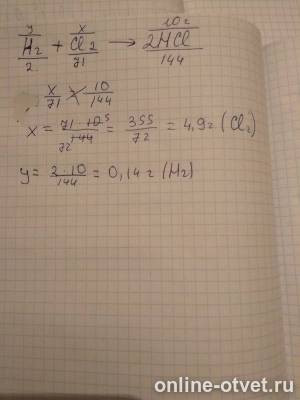 y x 10г
H₂ + Cl₂ → 2HCl
2 71 144
x/71 = 10/144
x = 71·10/144 = 355/72 = 4,9г (Cl₂)
72 5
y = 2·10/144 = 0,14г (H₂)
online-otvet.ru